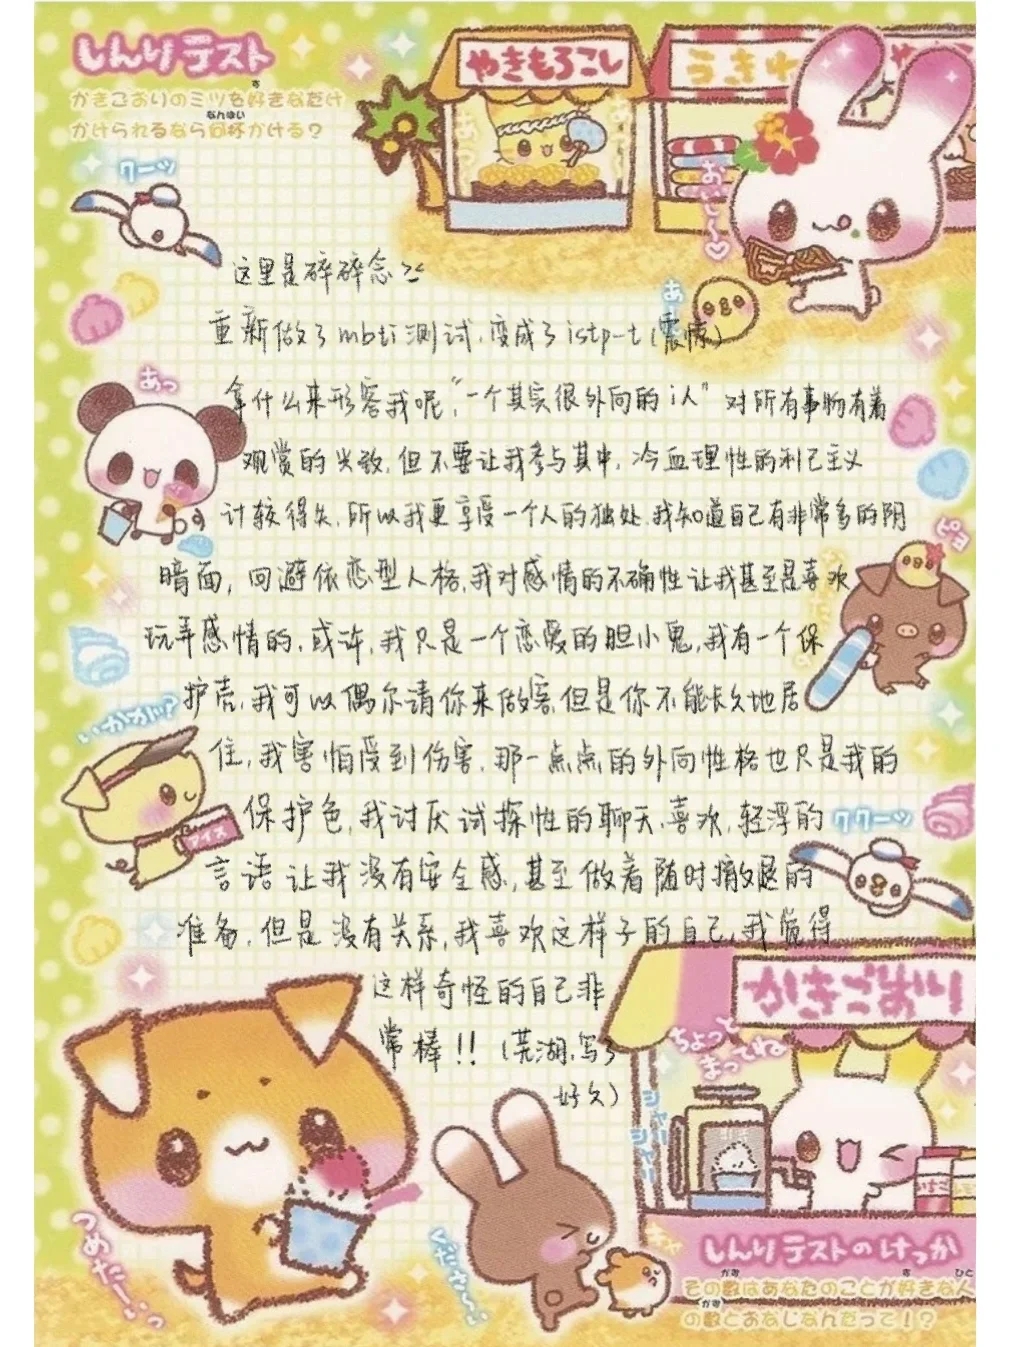 しんりテスト
かきごおりのミツを好きなだけ
かけられるなら何杯かける?
なんばい
す
やきもろこし
うきわ
クーッ
おいしー♡
あ
這里是碎碎念><
重新做了mbti测试,变成了istp-t(震惊)
あっ
拿什么来形容我呢,"一个其实很外向的i人"对所有事物有着
观赏的兴致,但不要让我参与其中,冷血理性的利己主义
计较得失,所以我更享受一个人的独处,我知道自己有非常多的阴
ピヨ
暗面,回避依恋型人格,我对感情的不确性让我甚至是喜欢
玩弄感情的,或许,我只是一个恋爱的胆小鬼,我有一个保
护壳,我可以偶尔请你来做客,但是你不能长久地居
いかが?
住,我害怕受到伤害,那一点点的外向性格也只是我的
保护色,我讨厌试探性的聊天,喜欢,轻浮的
アイス
ククーッ
言语让我没有安全感,甚至做着随时撤退的
准备,但是没有关系,我喜欢这样子的自己,我觉得
这样奇怪的自己非
常棒!!(芜湖,写了
好久)
かきごおり
ちょっと
まってね
シャリ
シャリ
いちご
つめたーいっ
くださーい
しんりテストのけっか
その数はあなたのことが好きな人
かず
す
ひと
の数とおなじなんだって!?
かず